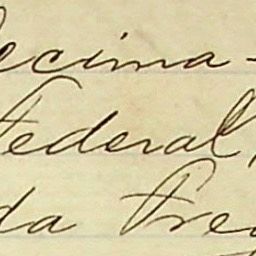 ecima-
Federal,
da Freg